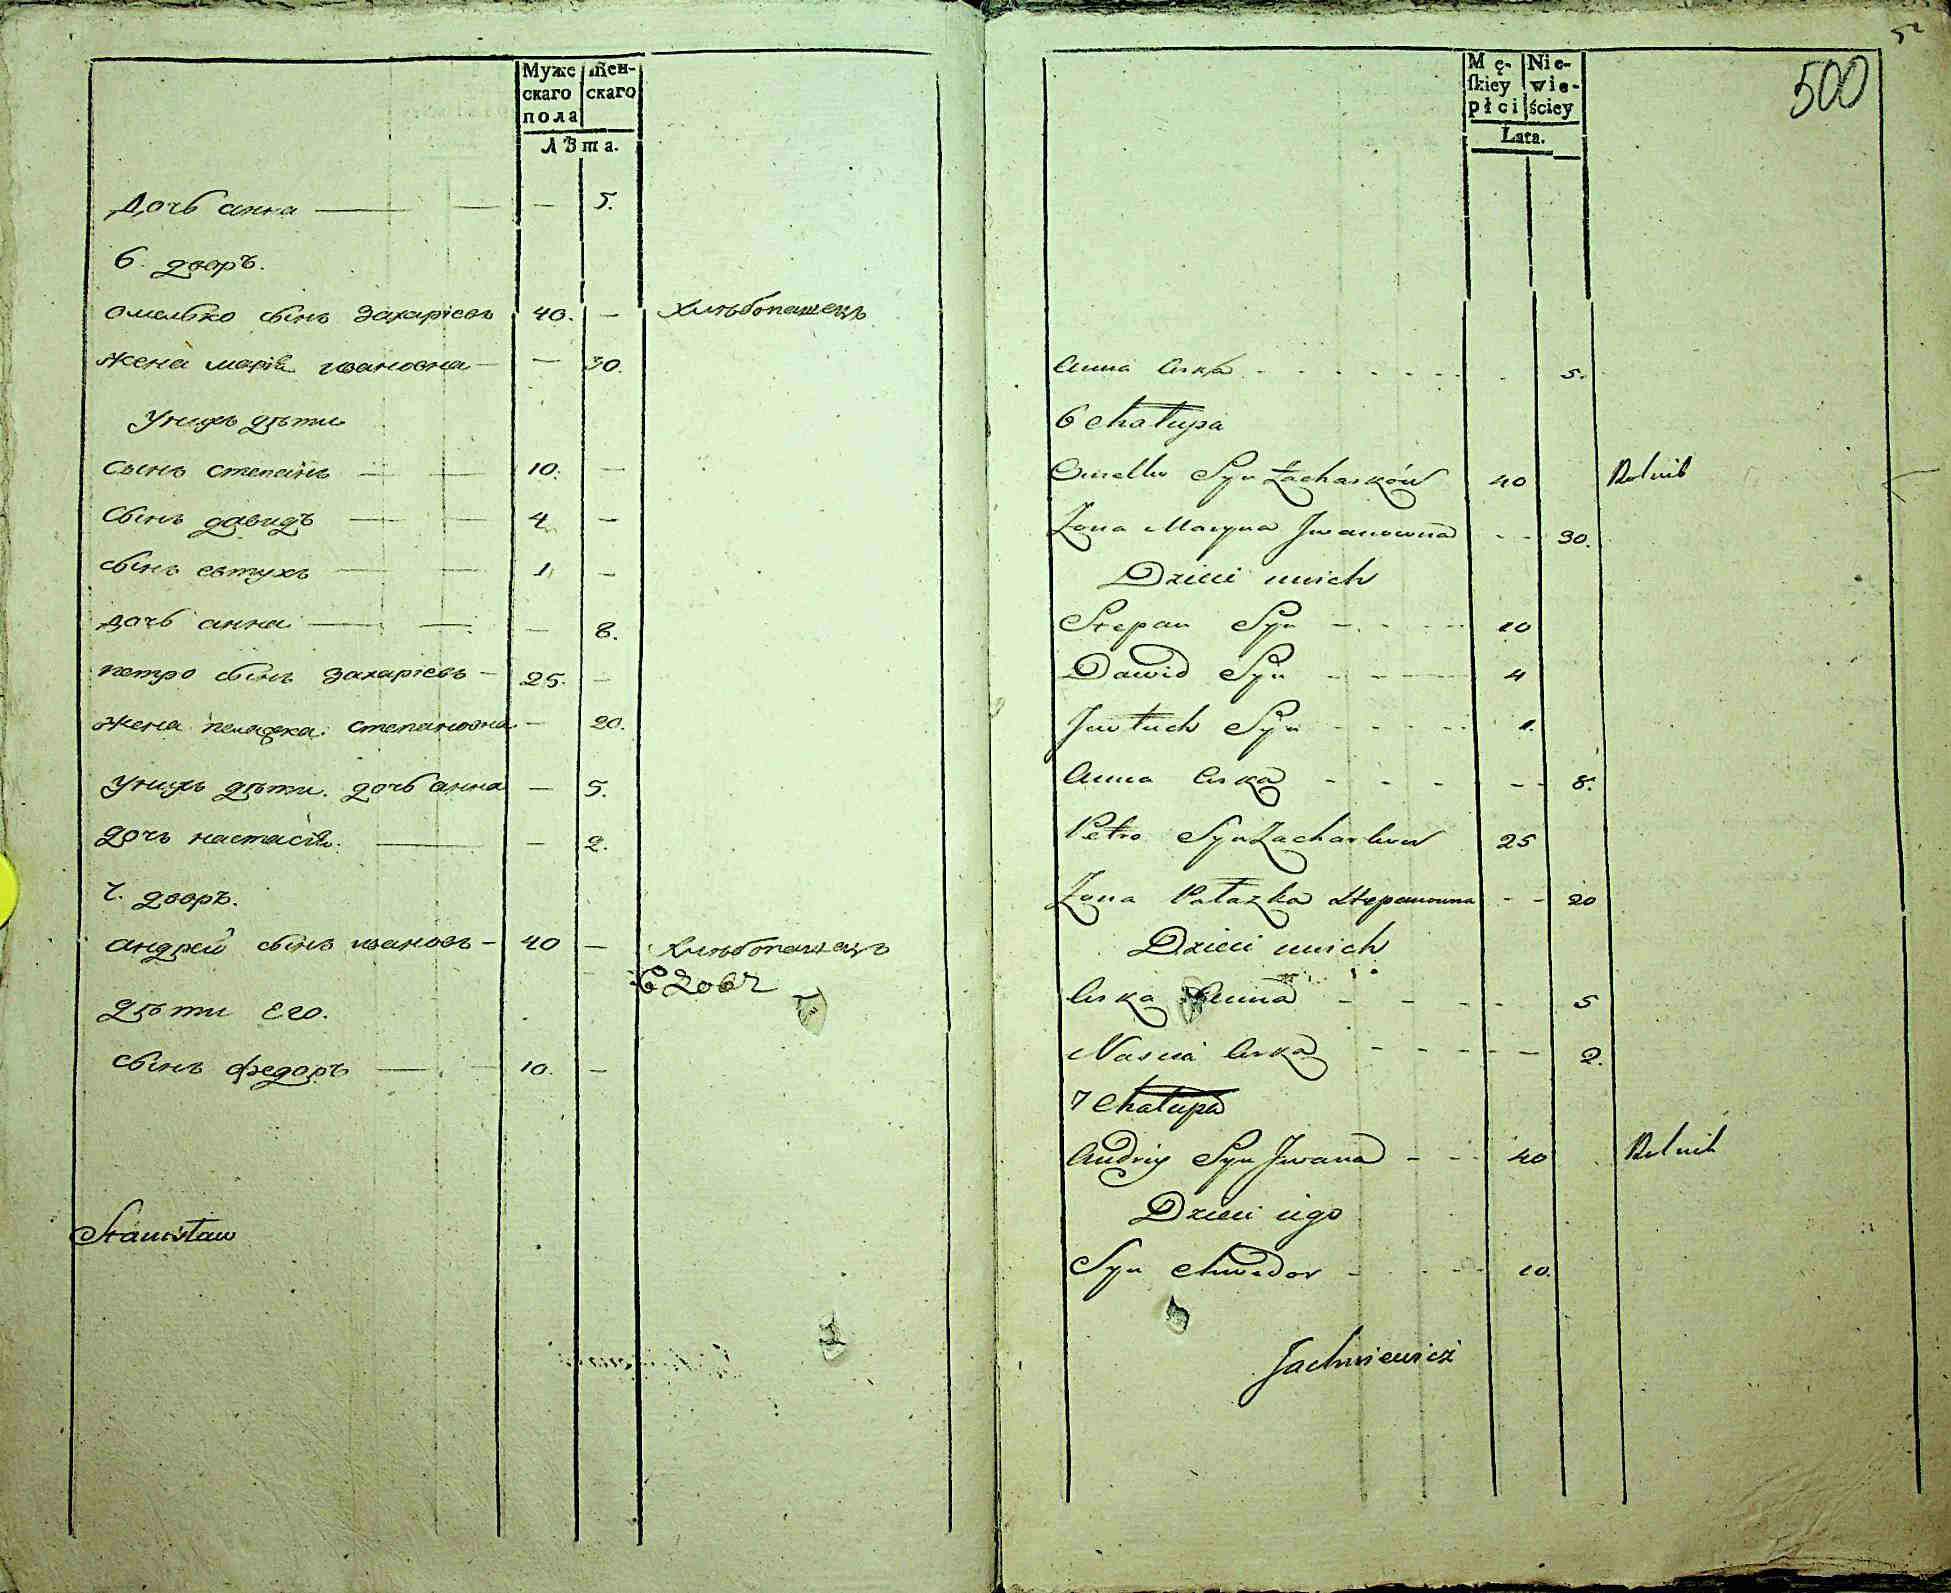 Муже скаго пола
Женскаго
Лѣта.
Дочь анна — 5.
6. дворъ.
омелько сынъ Захаріевъ 40. — хлѣбопашецъ
жена марія ивановна — 30.
Унихъ дѣти
сынъ степанъ — 10. —
сынъ давидъ — 4 —
сынъ евтухъ — 1 —
дочь анна — 8.
петро сынъ Захаріевъ — 25. —
жена пелажка степановна — 20.
Унихъ дѣти. дочь анна — 5.
дочъ настасія. — 2.
7. дворъ.
андрей сынъ ивановъ — 40 — хлѣбопашецъ
дѣти Его.
сынъ федоръ — 10. —
Stanisław
52
500
Męſkiey płci
Niewieściey
Lata.
Anna Crka 5.
6 Chałupa
Omelko Syn Zacharków 40 Rolnik
Zona Maryna Jwanowna 30.
Dzieci unich
Stepan Syn 10
Dawid Syn 4
Jewtuch Syn 1.
Anna Crka 8.
Petro Syn Zacharkow 25
Zona Pałazka Stepanowna 20
Dzieci unich
Crka Anna 5
Nascia Crka 2.
7 Chałupa
Andriy Syn Jwana 40 Rolnik
Dzieci iego
Syn Chwedor 10.
Jachniewicz